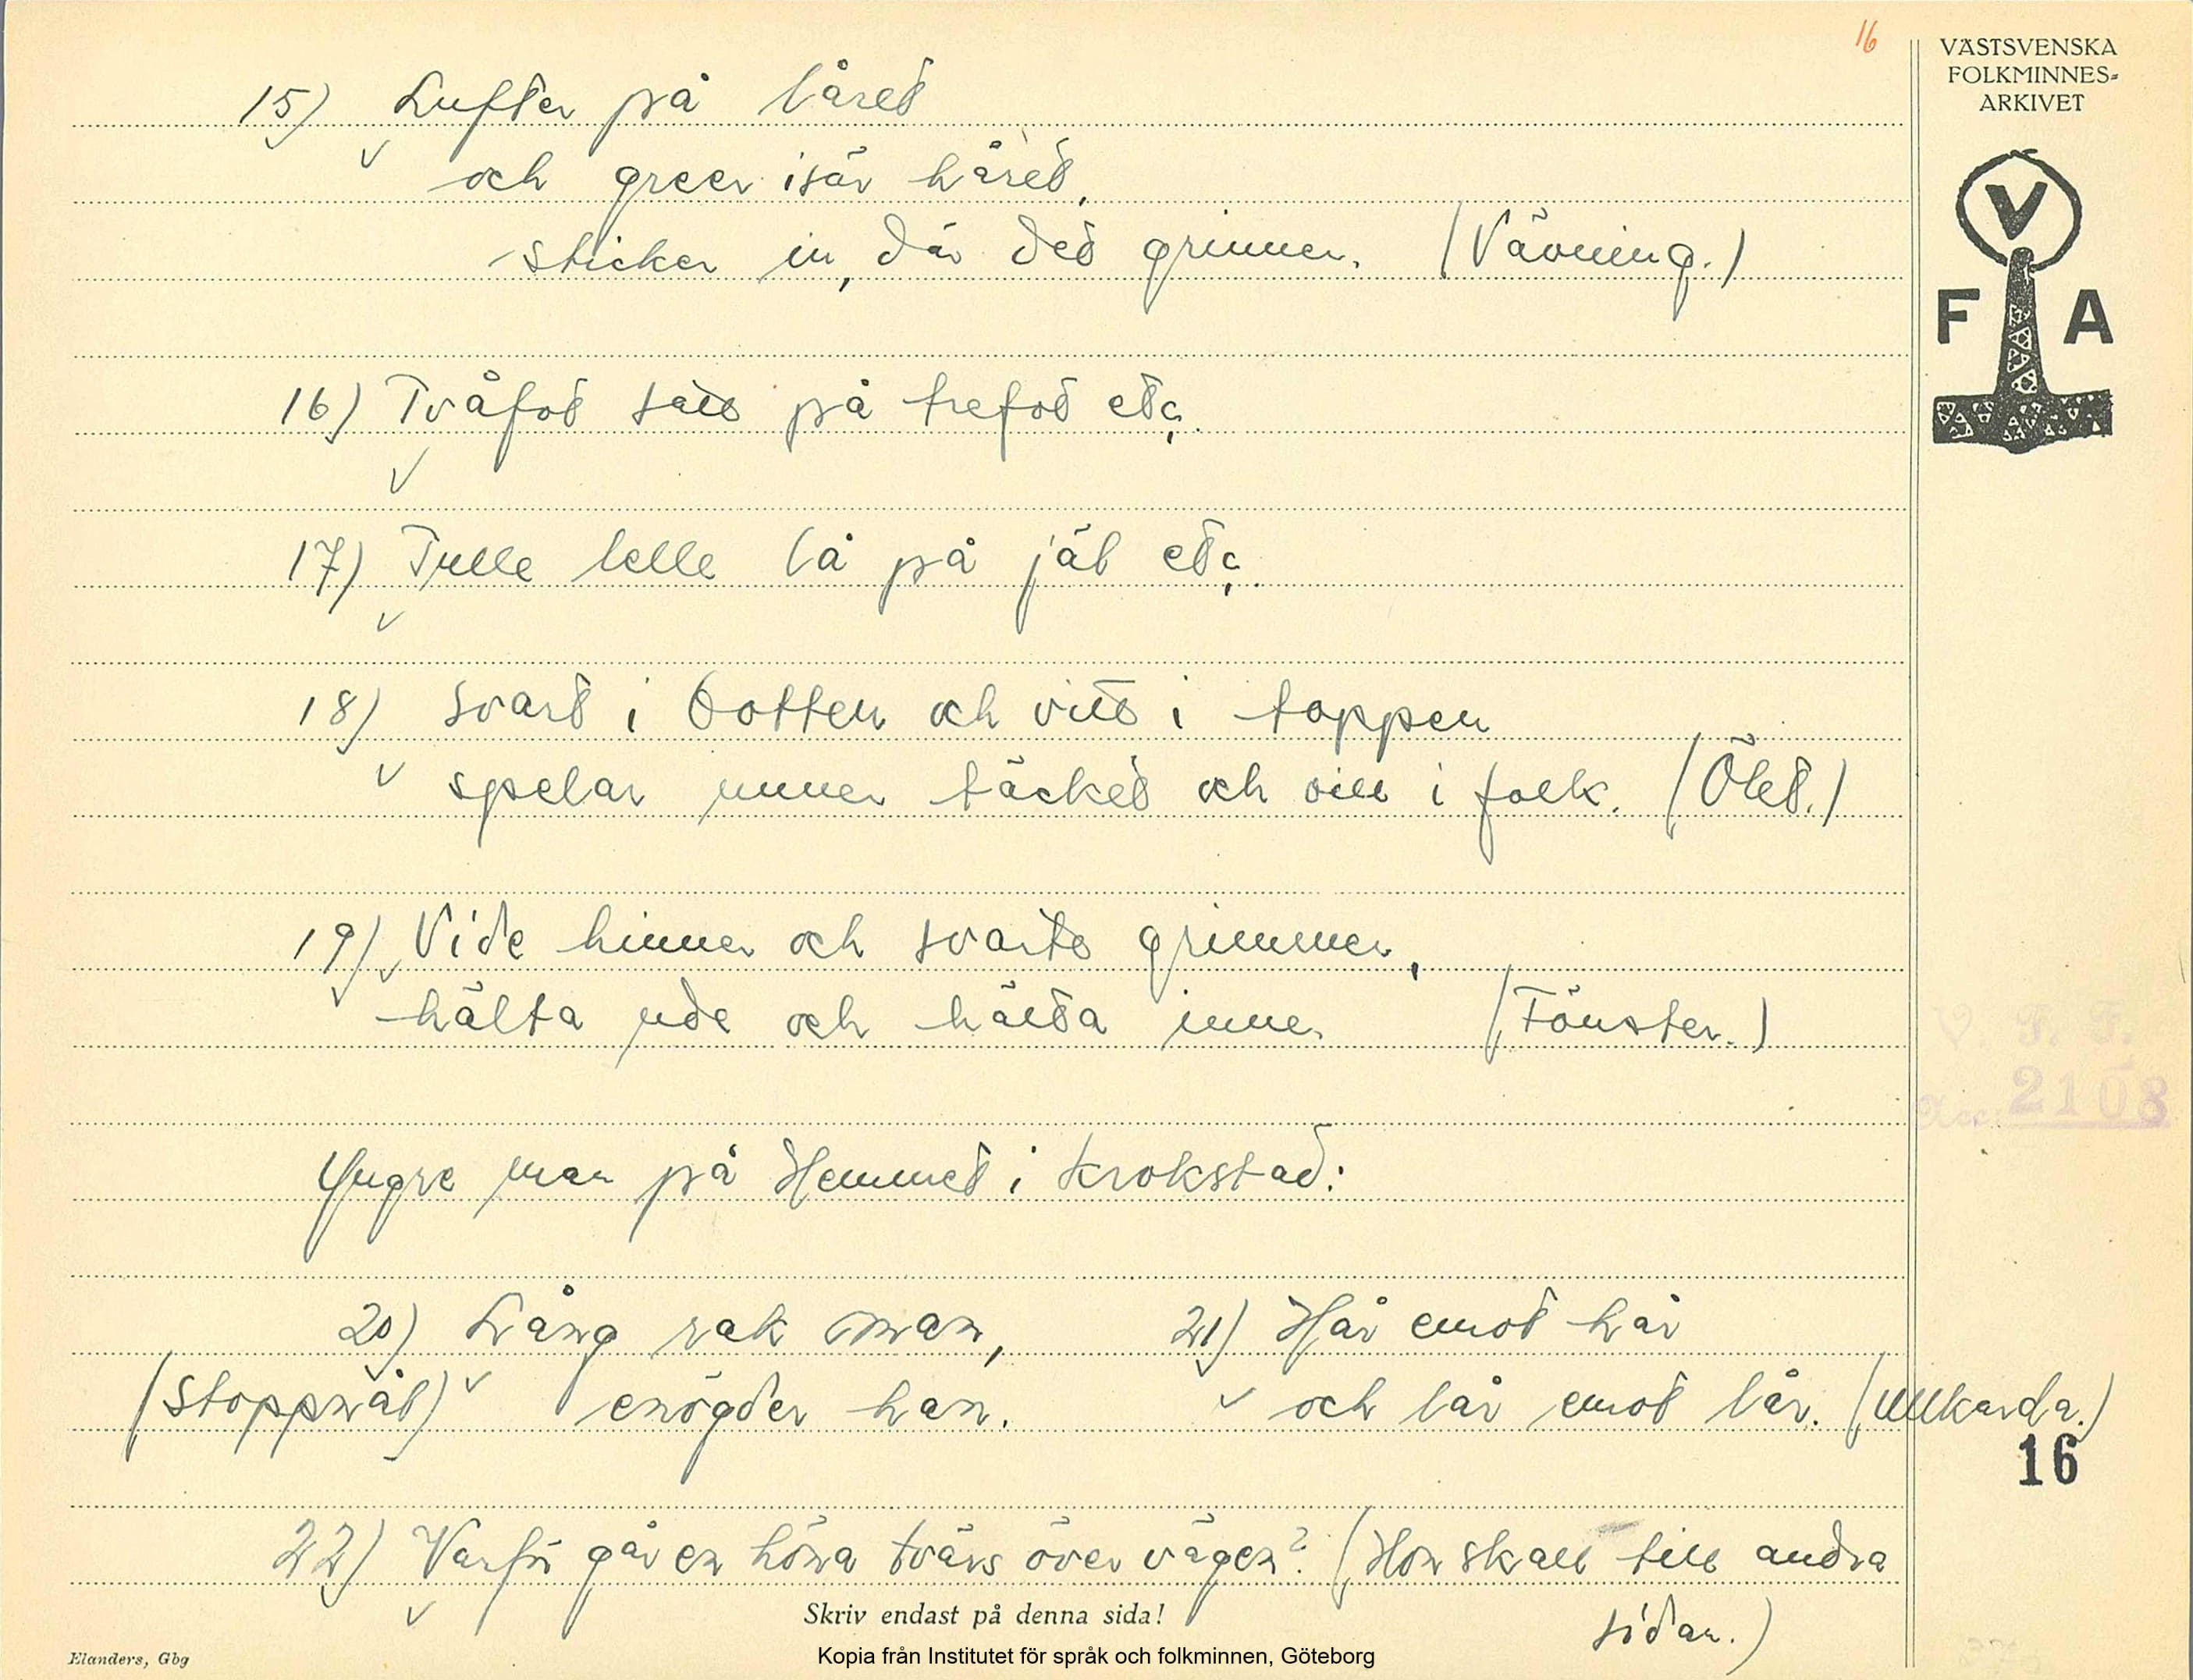 16
VÄSTSVENSKA
FOLKMINNES=
ARKIVET
V
F A
15) Lufter på låret
och greer isär håret,
sticker in, där det grinner. (Vävning.)
16) Tvåfot satt på trefot etc.
17) Tulle lelle lå på jäl etc.
18) Svart i botten och vitt i toppen
spelar unner täcket och vill i folk. (Ölet.)
19) Vide hinner och svarta grimmer,
hälta ude och hälta inne. (Fönster.)
V. F. F.
Acc. 2108
Yngre man på Hemmet i Krokstad:
20) Lång rak man,
(Stoppnål) enögder han.
21) Hår emot hår
och lår emot lår. (Ullkarda.)
16
22) Varför går en höna tvärs över vägen? (Hon skall till andra
sidan.)
Skriv endast på denna sida!
Kopia från Institutet för språk och folkminnen, Göteborg
Elanders, Gbg